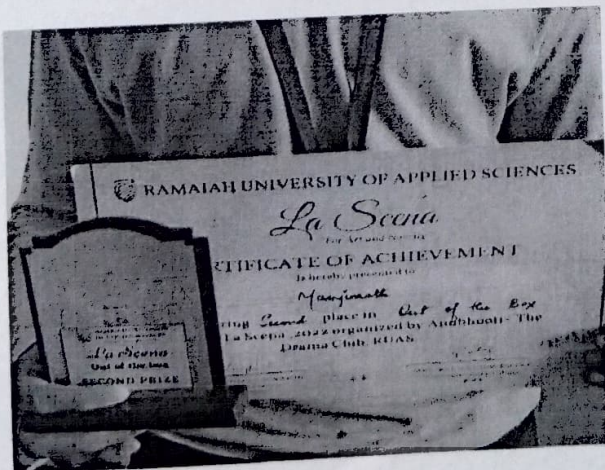 RAMAIAH UNIVERSITY OF APPLIED SCIENCES
La Scena
For Art and
RTIFICATE OF ACHIEVEMENT
Is hereby presented to
Manjunath
ring Second place in Out of the Box
La Scena 2022 organized by Anubhooti - The
Drama Club, RUAS
La Scena
Out of the box
SECOND PRIZE